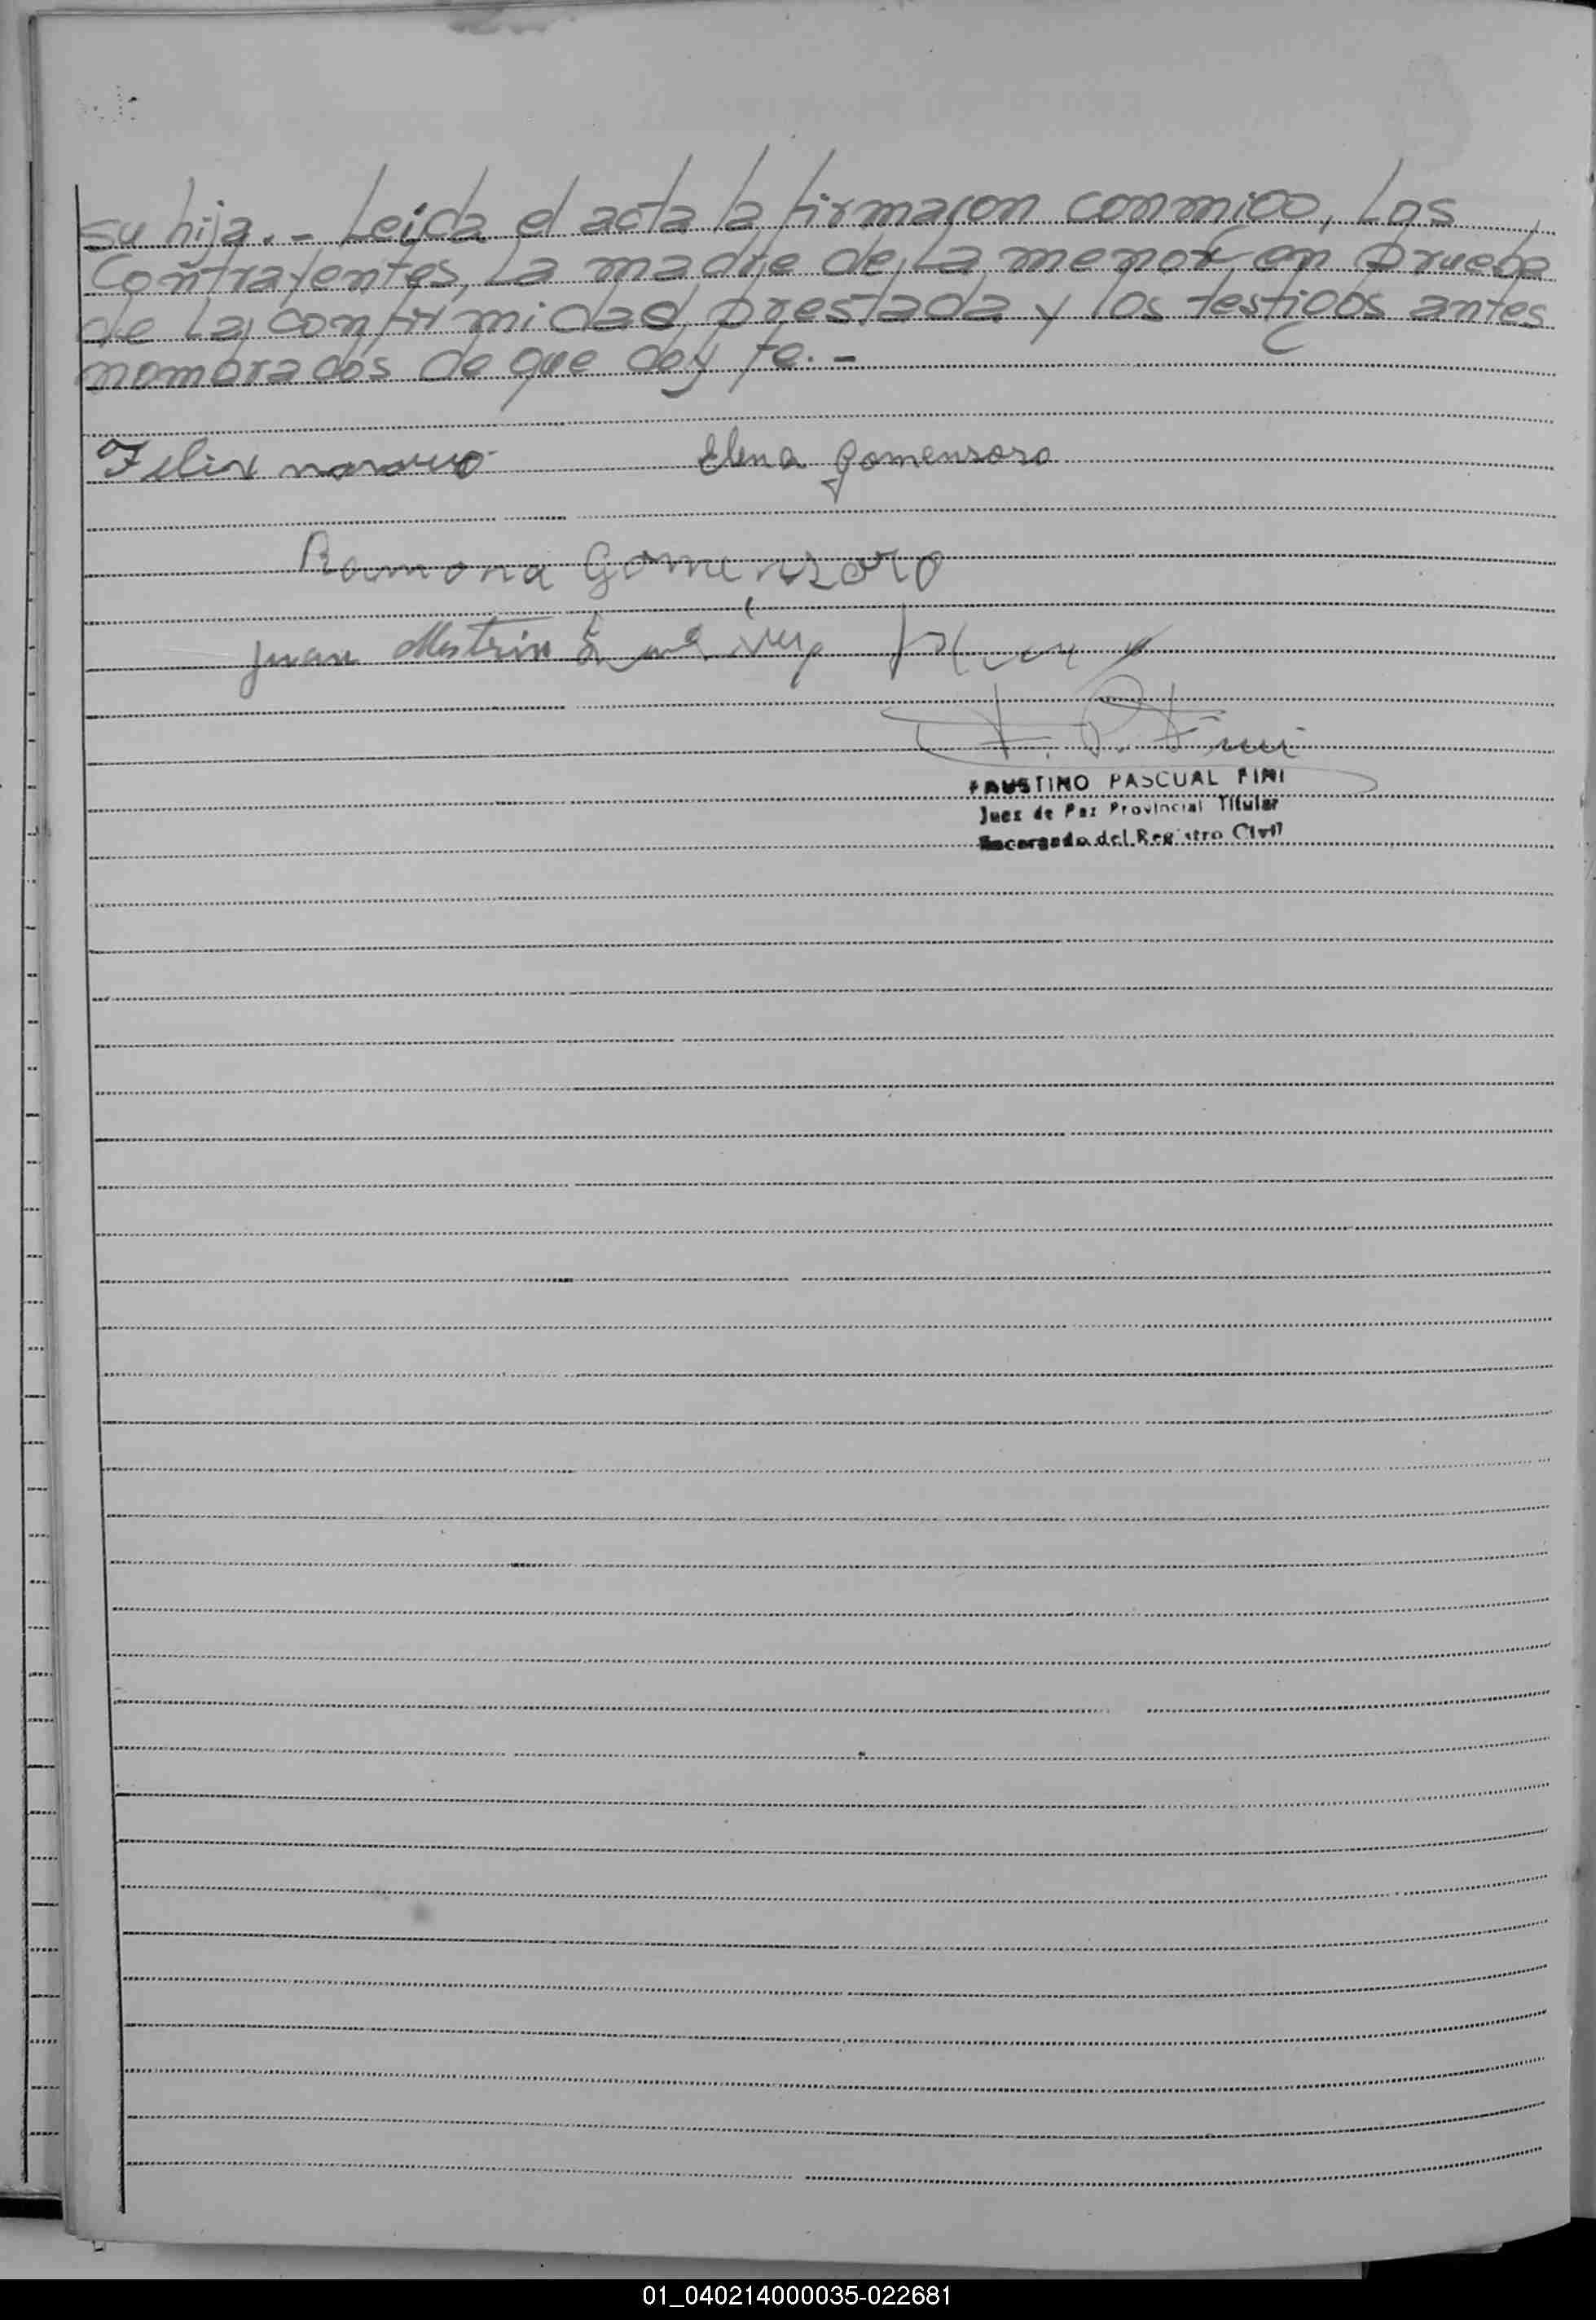 su hija. - Leida el acta la firmaron conmigo, los
Contrayentes, la madre de la menor en prueba
de la confirmidad prestada y los testigos antes
nombrados de que doy fe. -
Felix navarro Elena gomensoro
Ramona Gomenzoro
juan
F. P. Fini
FAUSTINO PASCUAL FINI
Juez de Paz Provincial Titular
Encargado del Registro Civil
01_040214000035-022681